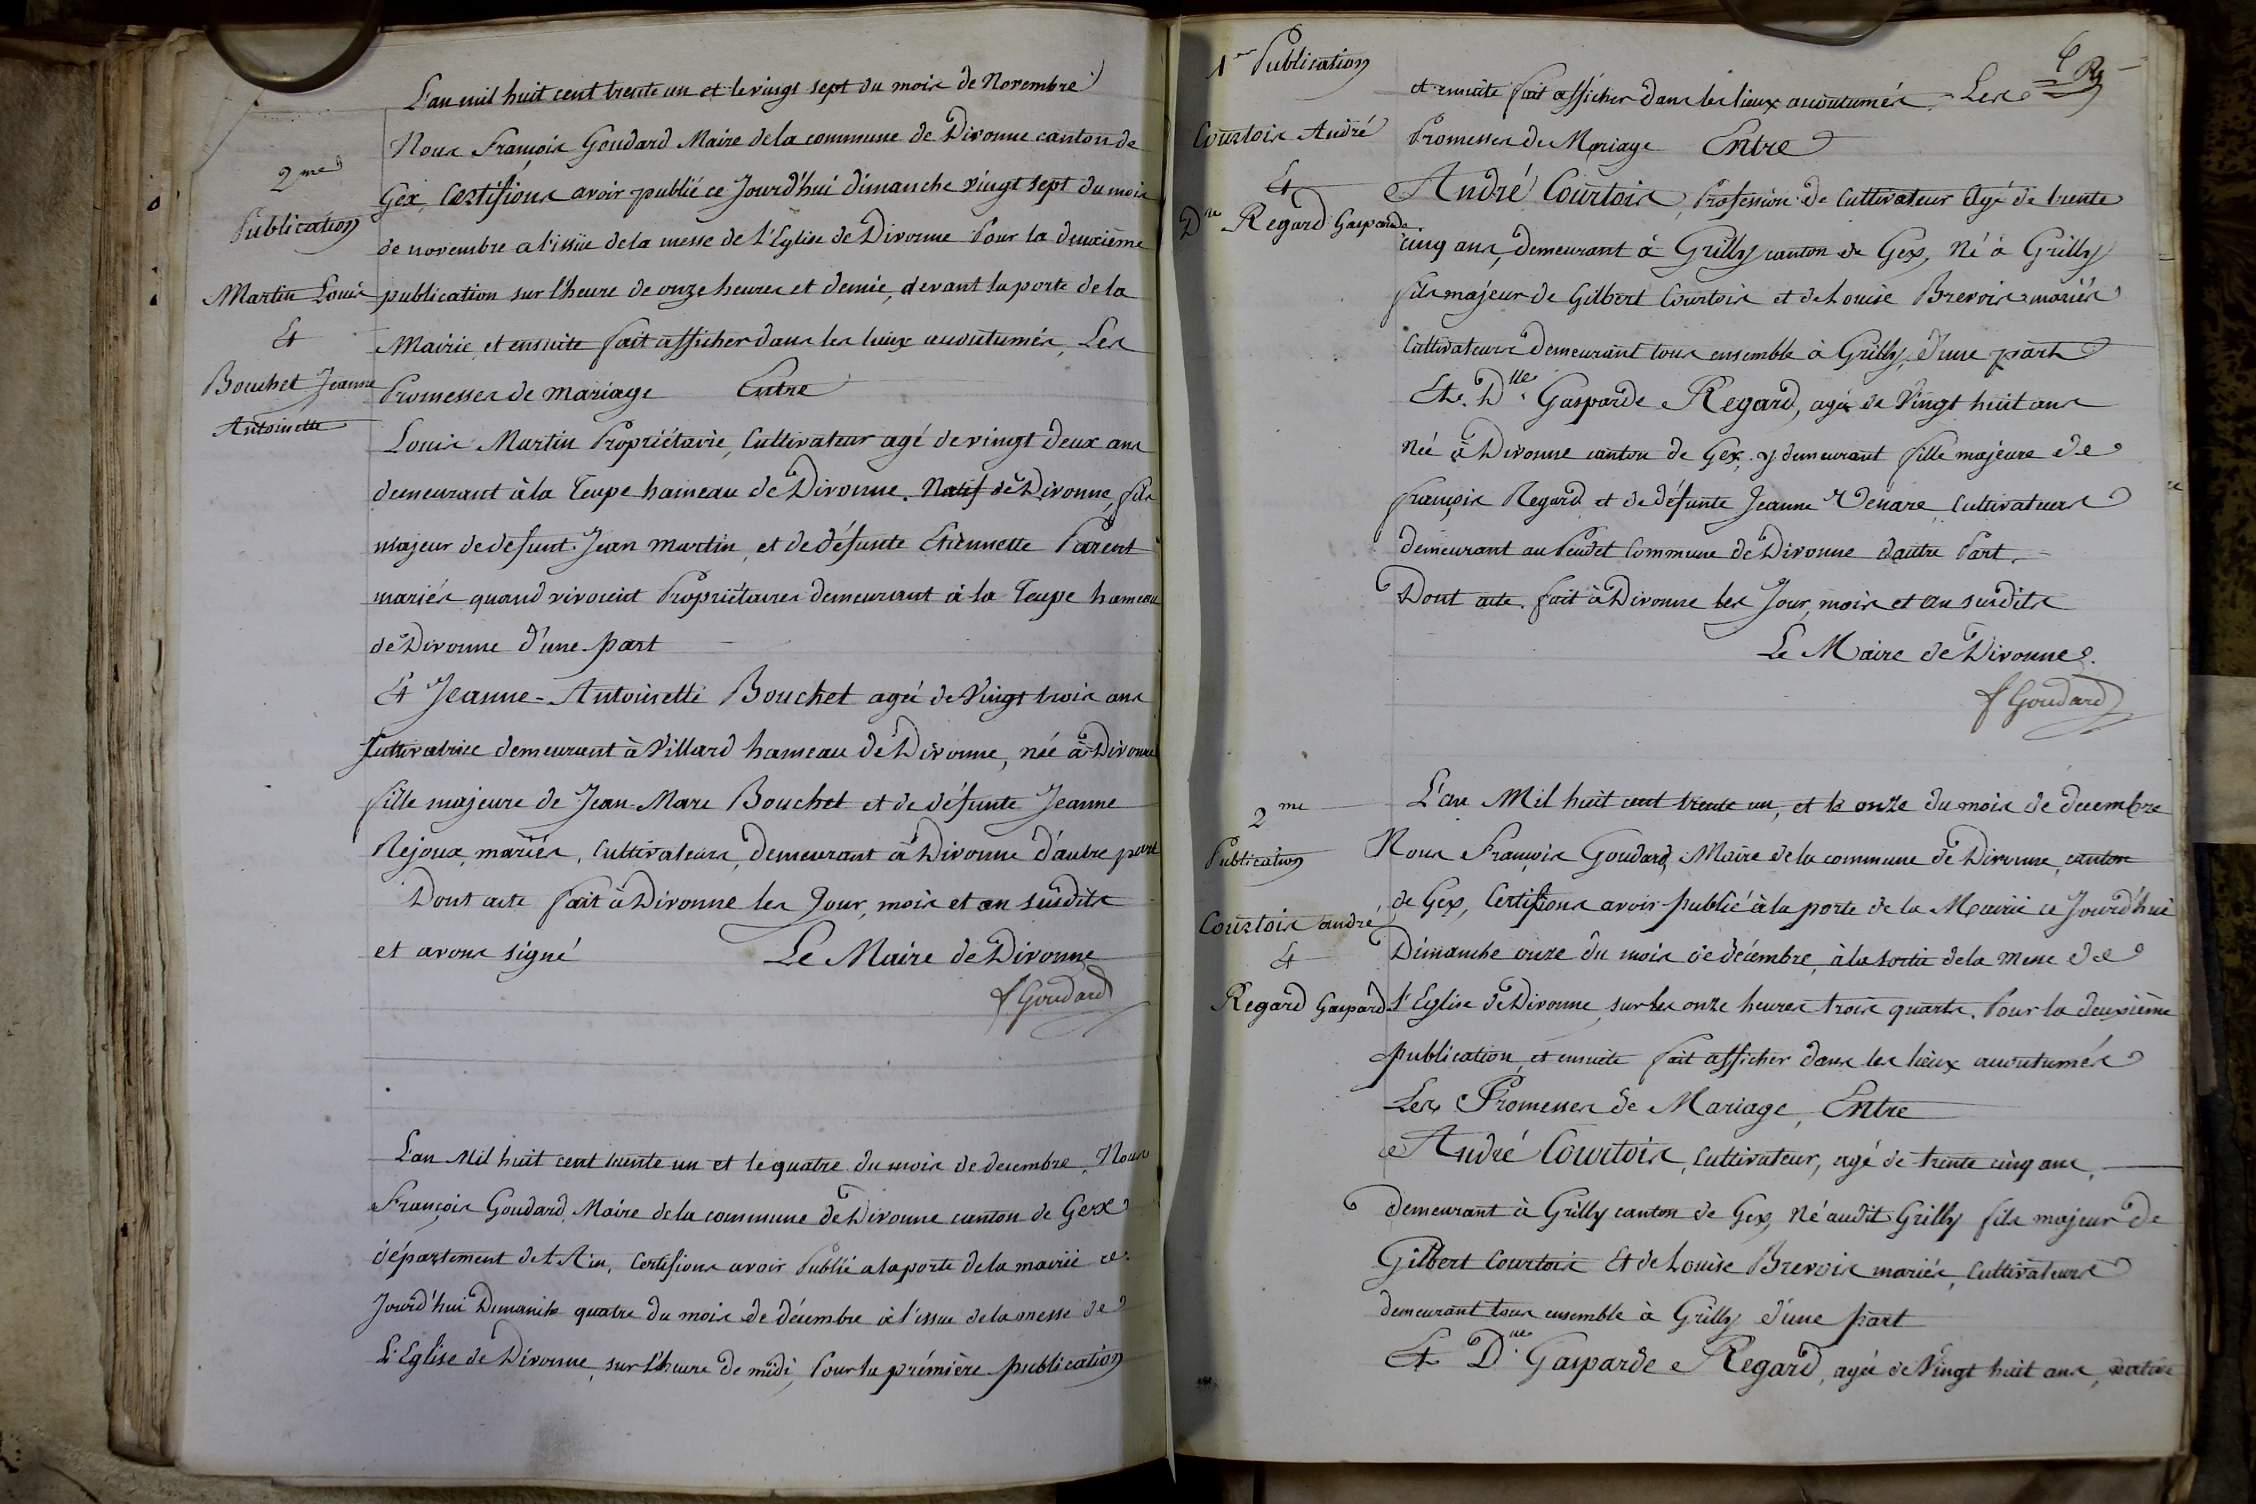 L'an mil huit cent trente un et le vingt sept du mois de Novembre
Nous François Goudard Maire de la commune de Divonne canton de
2me
Gex, Certifions avoir publié ce Jourd'hui dimanche vingt sept du mois
Publication
de novembre a l'issüe de la messe de l'Eglise de Divonne Pour la deuxième
Martin Louis
publication sur l'heure de onze heures et demie, devant la porte de la
Et
Mairie, et ensuite fait afficher dans les lieux accoutumés, Les
Bouchet Jeanne
Antoinette
Promesses de mariage Entre
Louis Martin Propriétaire, Cultivateur agé de vingt deux ans
demeurant à la Teupe hameau de Divonne. Natif de Divonne, fils
majeur de defunt Jean Martin, et de défunte Etiennette Parent
mariés quand vivoient Propriétaires demeurant à la Teupe hameau
de Divonne d'une part
Et Jeanne-Antoinette Bouchet agée de Vingt trois ans
Cultivatrice demeurant à Villard hameau de Divonne, née à Divonne
fille majeure de Jean-Marc Bouchet et de défunte Jeanne
Rejoux, mariés, Cultivateurs, demeurant à Divonne d'autre part
Dont acte fait à Divonne les Jour, mois et an susdits
et avons signé Le Maire de Divonne
f Goudard
L'an Mil huit cent trente un et le quatre du mois de decembre, Nous
François Goudard, Maire de la commune de Divonne canton de Gex
département de l'Ain, Certifions avoir Publié a la porte de la mairie ce
Jourd'hui Dimanche quatre du mois de décembre à l'issue de la messe de
L'Eglise de Divonne, sur l'heure de midi, Pour la première publication
1re Publication
Courtois André
Et
Dlle Regard Gasparde
et ensuite fait afficher dans les lieux accoutumés, Les
Promesses de Mariage Entre
André Courtois, Profession de Cultivateur Agé de trente
cinq ans, demeurant à Grilly canton de Gex, Né à Grilly
fils majeur de Gilbert Courtois et de Louise Brevois mariés
Cultivateurs demeurant tous ensemble à Grilly, d'une part
Et Dlle Gasparde Regard, agée de Vingt huit ans
Née à Divonne canton de Gex, y demeurant fille majeure de
François Regard et de défunte Jeanne Venare Cultivateurs
demeurant au Peudet Commune de Divonne d'autre Part.
Dont acte fait à Divonne les Jour, mois et an susdits
Le Maire de Divonne.
f Goudard
2me
Publication
Courtois andré
Et
Regard Gaspard
L'an Mil huit cent trente un, et le onze du mois de decembre
Nous François Goudard, Maire de la commune de Divonne, canton
de Gex, Certifions avoir publié à la porte de la Mairie ce Jourd'hui
Dimanche onze du mois de décembre, à la sortie de la Messe de
l'Eglise de Divonne, sur les onze heures trois quarts, Pour la deuxième
publication, et ensuite fait afficher dans les lieux accoutumés
Les Promesses de Mariage, Entre
André Courtois, Cultivateur, agé de trente cinq ans,
demeurant à Grilly canton de Gex, Né audit Grilly fils majeur de
Gilbert Courtois Et de Louise Brevois mariés, Cultivateurs
demeurant tous ensemble à Grilly d'une part
Et Dlle Gasparde Regard, agée de Vingt huit ans, native